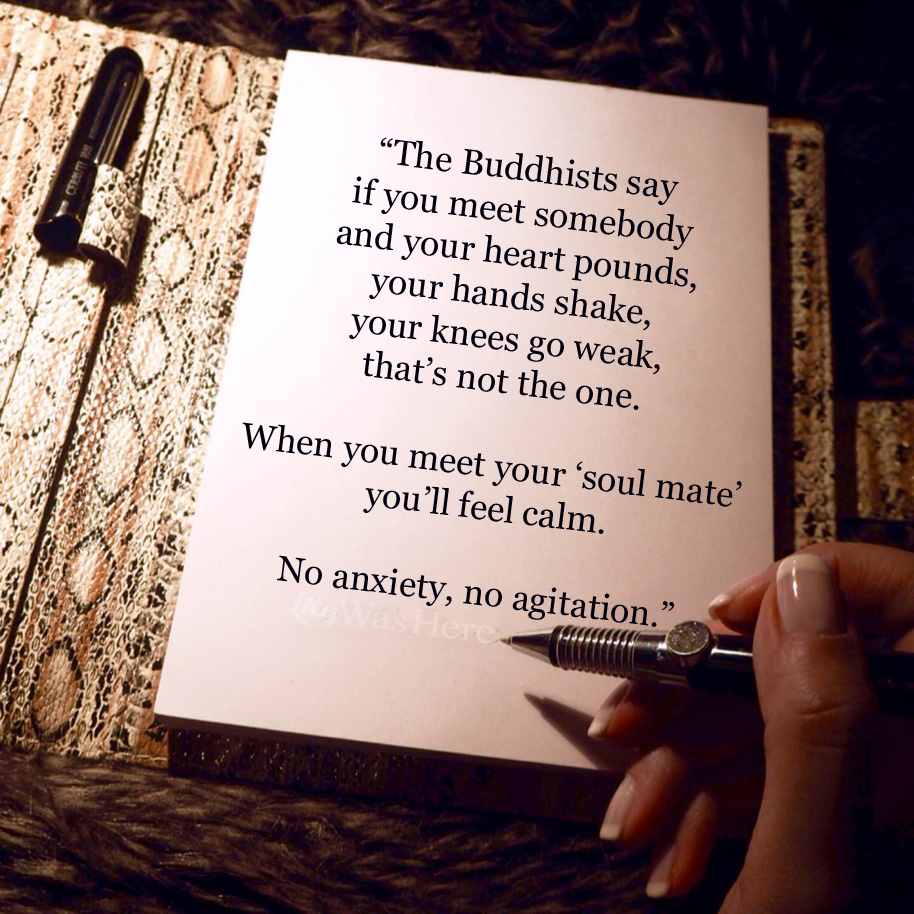 “The Buddhists say
if you meet somebody
and your heart pounds,
your hands shake,
your knees go weak,
that’s not the one.
When you meet your ‘soul mate’
you’ll feel calm.
No anxiety, no agitation.”
WasHere
CERRUTI 1881